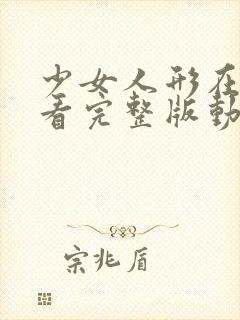 少女人形在
看完整版動
宗兆盾